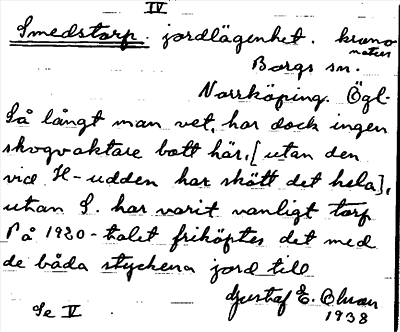 IV
Smedstorp. jordlägenhet. krono
natur
Borgs sn.
Norrköping. Ögl.
Så långt man vet, har dock ingen
skogvaktare bott här, [utan den
vid H-udden har skött det hela],
utan S. har varit vanligt torp
På 1920-talet friköptes det med
de båda styckena jord till
Gustaf E. Ohman
1938
Se V